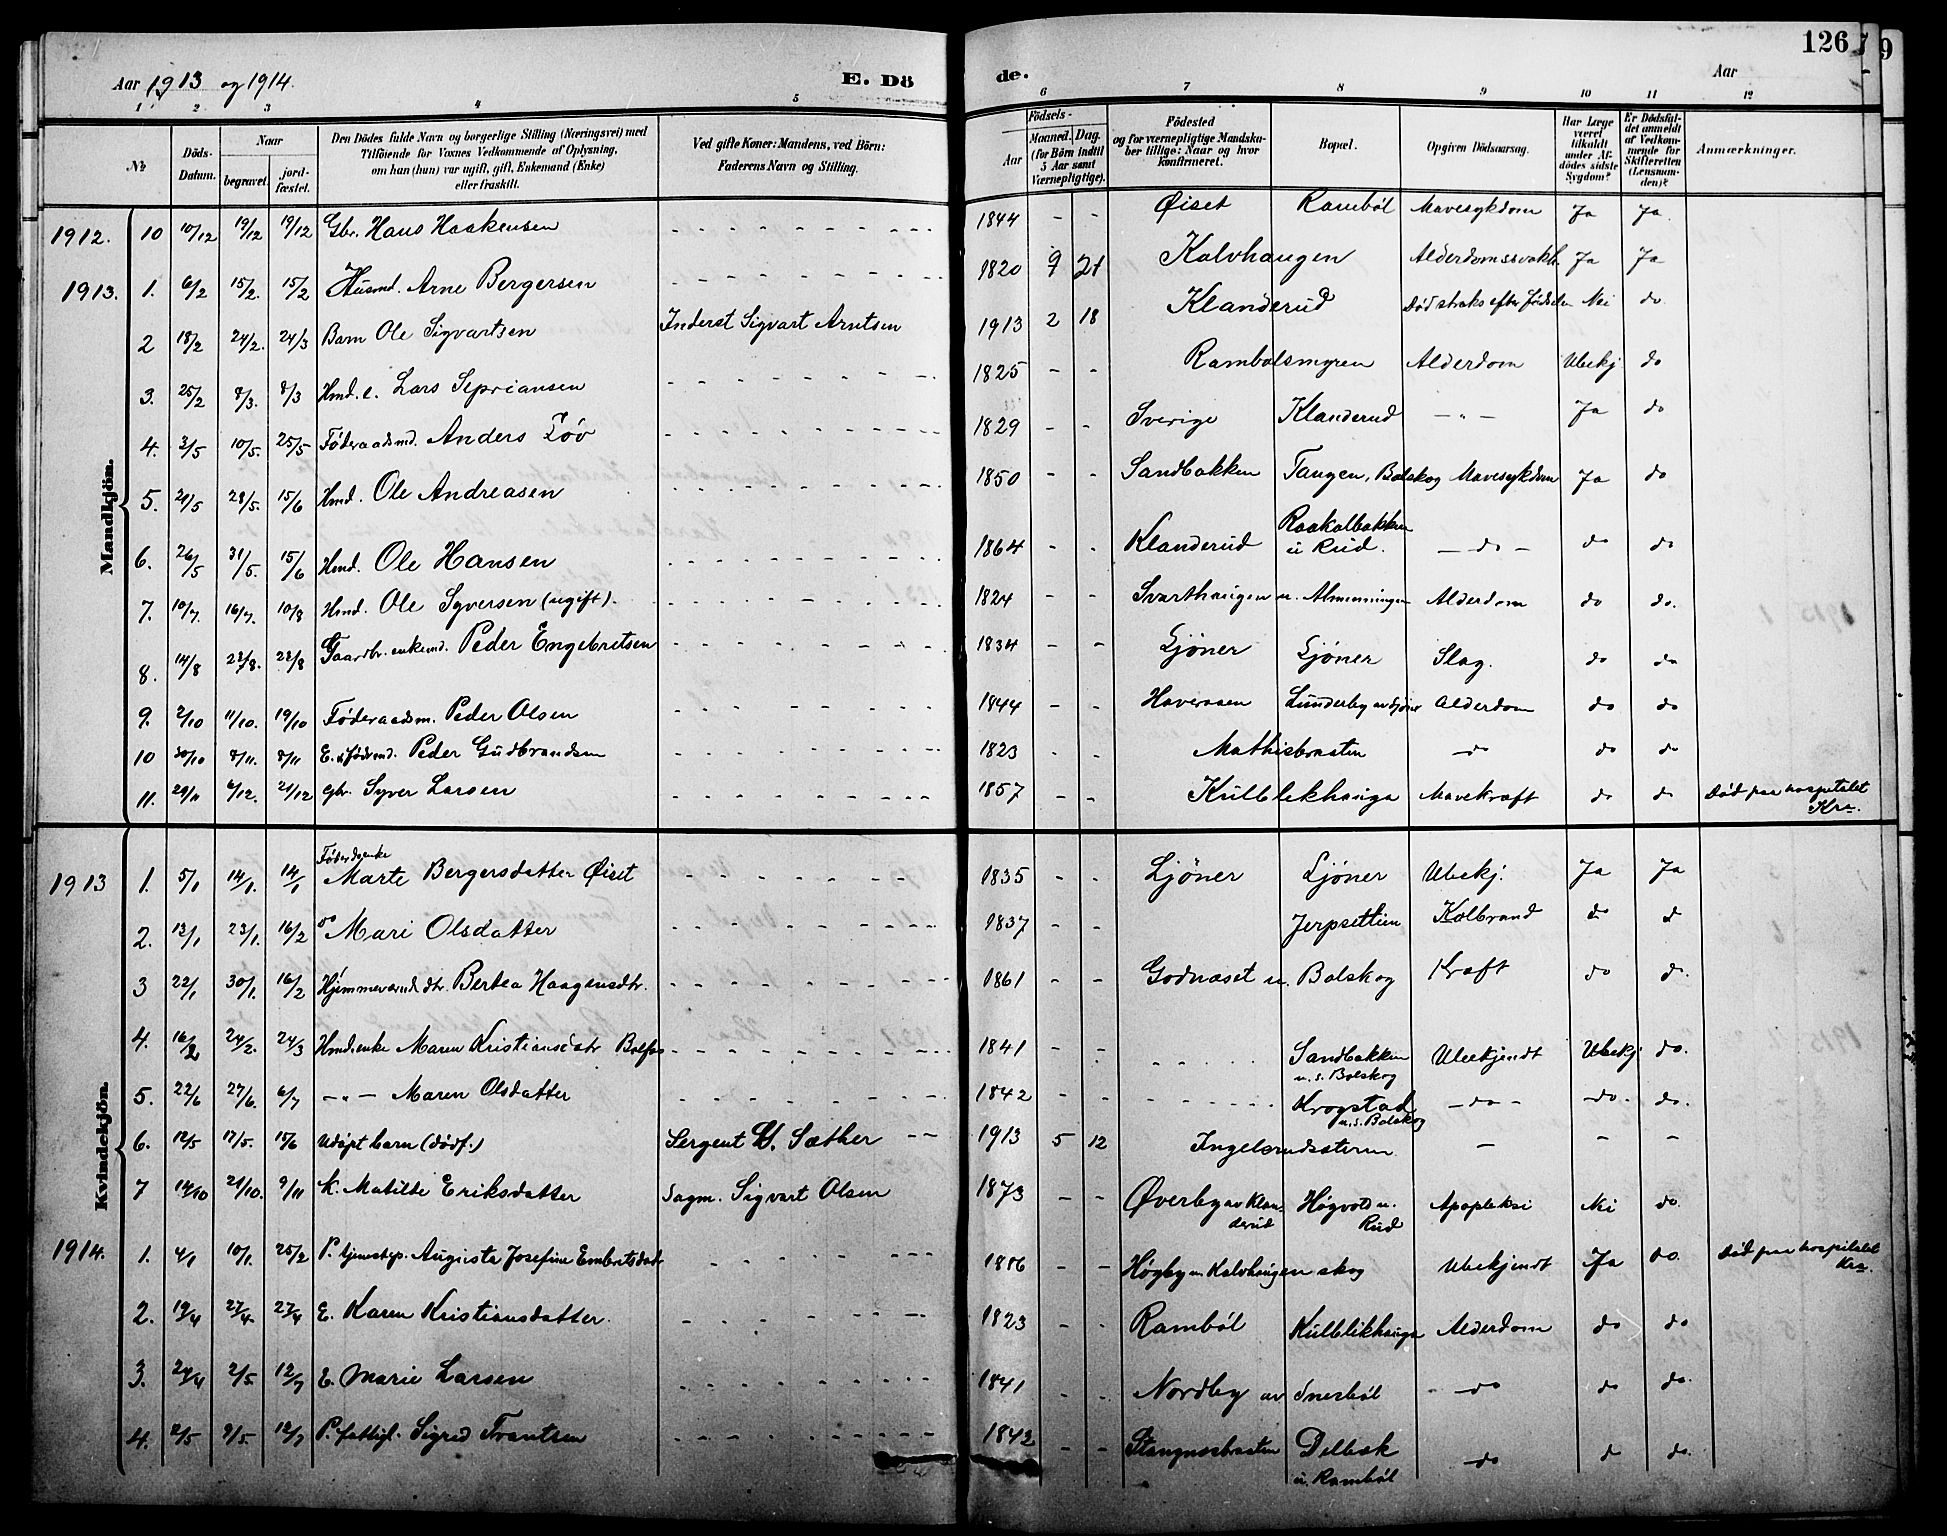 Aar 1913 og 1914.
E. Dö
de.
Aar
126
9
1 2 3 4 5 6 7 8 9 10 11 12
№
Döds-Datum.
Naar
begravet.
jord-fæstet.
Den Dödes fulde Navn og borgerlige Stilling (Næringsvei) med
Tilföiende for Voxnes Vedkommende af Oplysning,
om han (hun) var ugift, gift, Enkemand (Enke)
eller fraskilt.
Ved gifte Koner: Mandens, ved Börn:
Faderens Navn og Stilling.
Födsels-
Aar
Maaned. Dag.
(for Börn indtil
5 Aar samt
Værnepligtige).
Födested
og for værnepligtige Mandska-
ber tillige: Naar og hvor
konfirmeret.
Bopæl.
Opgiven Dödsaarsag.
Har Læge
været
tilkaldt
under Af-
dödes sidste
Sygdom?
Er Dödsfal-
det anmeldt
af Vedkom-
mende for
Skifteretten
(Lensman-
den)?
Anmærkninger.
Mandkjön.
1912. 10 10/12 19/12 19/12 Gbr. Hans Haakensen 1844 - - Øiset Rambøl Mavesykdom Ja Ja.
1913. 1. 6/2 15/2. 15/2 Husmd. Arne Bergersen 1820 9 21 Kalvhaugen Alderdomssvakh. Ja Ja
2 18/2 24/2. 24/3 Barn Ole Sigvartsen Inderst Sigvart Arntsen 1913 2 18 Klanderud Død straks efter fødselen Nei do
3. 25/2 8/3. 8/3 Hmd. e. Lars Sepriansen 1825 - - Rambølsmyren Alderdom Ubekj. do
4. 3/5 10/5. 25/5 Føderaadsmd. Anders Løv 1829 - - Sverige Klanderud - " - Ja do
5. 21/5 28/5. 15/6 Hmd. Ole Andreasen 1850 - - Sandbakken Tangen, Bolskog Mavesykdom Ja do
6. 26/5 31/5. 15/6 Hmd. Ole Hansen 1864 - - Klanderud Raakalbakken u Rud. - do - do do
7. 10/7 16/7. 10/8 Hmd. Ole Syversen (ugift). 1824 - - Svarthaugen u. Almenningen Alderdom do do.
8. 14/8 22/8. 22/8 Gaardbr. enkemd. Peder Engebretsen 1834 - - Ljøner Ljøner Slag. do do
9. 2/10 11/10. 19/10 Føderaadsm. Peder Olsen 1844 - - Haverasen Lunderby av Ljøner Alderdom do do
10 30/10 8/11. 8/11 Peder Gudbrandsen 1823 - Mathisbraaten - do do do
11. 29/11 6/12. 21/12 Gbr. Syver Larsen 1857 - - Kulblikhauga Mavekræft do do Død paa hospitalet
Kra.
Kvindekjön.
1913 1. 5/1 14/1. 14/1 Føderdsenke
Marte Bergersdatter Øiset 1835 - - Ljøner Ljøner Ubekj. Ja Ja
2. 13/1 23/1. 16/2 do Mari Olsdatter 1837 - - Jerpsettien Kolbrand do do
3 22/1 30/1. 16/2 Hjemmeværnd. dtr. Bertea Haagensdtr. 1861 - - Godnaset u. Bolskog Kræft do do.
4. 16/2 24/2. 24/3 Hmdsenke Maren Kristiansdtr Bolfos 1841 - - Sandbakken
u. s. Bolskog Ubekjendt Ubekj do.
5. 22/6 27/6. 6/7 - " - Maren Olsdatter 1842 - - Krogstad
u. s. Bolskog - do - - do. do.
6. 12/5 17/5. 15/6 Udøpt barn (dødf.) Sergent Sæther 1913 5 12 Ingelsrudsæteren - - -
7 14/10 21/10. 9/11 K. Matilde Eriksdatter Sagm. Sigvart Olsen 1873 - - Øverby av Klan-
derud Høgvold u.
Rud Apopleksi Nei do.
1914. 1. 4/1 10/1. 25/2 P. tjenestep. Augusta Josefine Embretsdatr 1886 - - Høgby u. Kalvhaugen skog Ubekjendt Ja do. Død paa hospitalet
Kra.
2. 19/4 27/4. 27/4 E. Karen Kristiansdatter. 1823 - - Rambøl Kulblikhauga Alderdom do do
3. 24/4 2/5. 12/7 E. Marie Larsen 1841 - - Nordby av Snerbøl - do do do.
4. 2/5 9/5. 12/7 P. fattigl. Sigrid Frantsen 1842 - - Stangnesbraaten Delbæk
u. Rambøl - do do do.